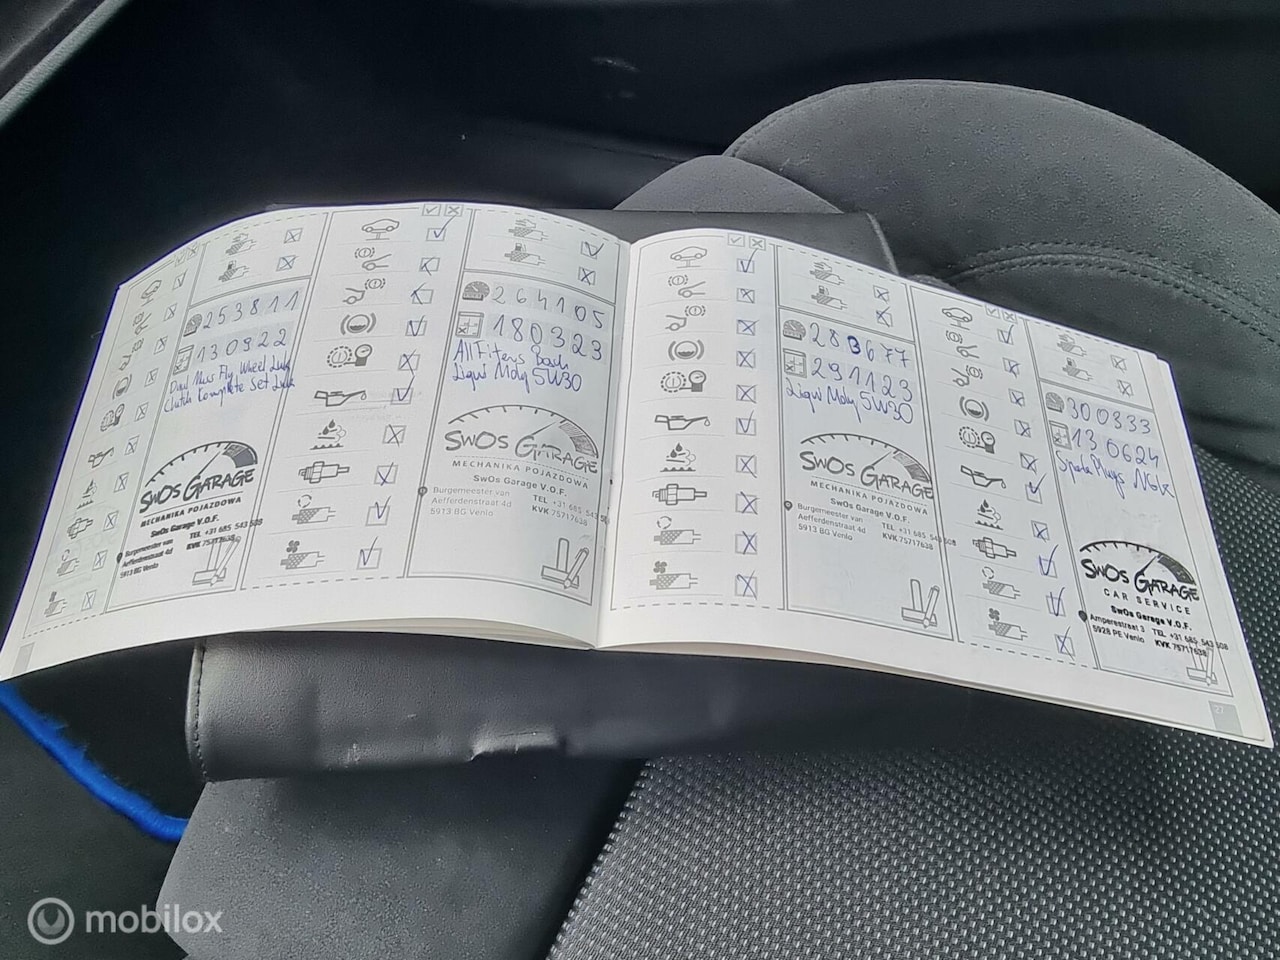 253811
130922
Dual Mas Fly Wheel Luk
Clutch Komplete Set Luk
SwOs GARAGE
MECHANIKA POJAZDOWA
SwOs Garage V.O.F.
Burgemeester van
Aefferdenstraat 4d
5913 BG Venlo
TEL +31 685 543 508
KVK 75717638
264105
180323
All Filters Bosch
Liqui Moly 5W30
SwOs GARAGE
MECHANIKA POJAZDOWA
SwOs Garage V.O.F.
Burgemeester van
Aefferdenstraat 4d
5913 BG Venlo
TEL +31 685 543 508
KVK 75717638
283677
291123
Liqui Moly 5W30
SwOs GARAGE
MECHANIKA POJAZDOWA
SwOs Garage V.O.F.
Burgemeester van
Aefferdenstraat 4d
5913 BG Venlo
TEL +31 685 543 508
KVK 75717638
300333
130624
Spark Plugs NGK
SwOs GARAGE
CAR SERVICE
SwOs Garage V.O.F.
Amperestraat 3
5928 PE Venlo
TEL +31 685 543 508
KVK 75717638
27
mobilox